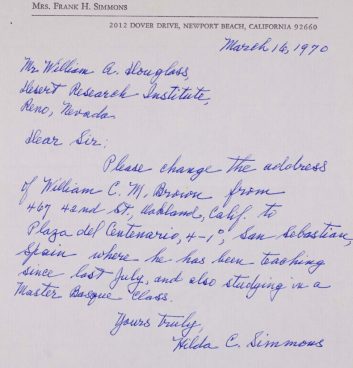 MRS. FRANK H. SIMMONS
2012 DOVER DRIVE, NEWPORT BEACH, CALIFORNIA 92660
March 16, 1970
Mr. William A. Douglass,
Desert Research Institute,
Reno, Nevada
Dear Sir:
Please change the address
of William C. M. Brown from
467 42nd St., Oakland, Calif. to
Plaza del Centenario, 4-1°, San Sebastian,
Spain where he has been teaching
since last July, and also studying in a
Master Basque Class.
Yours truly,
Hilda C. Simmons